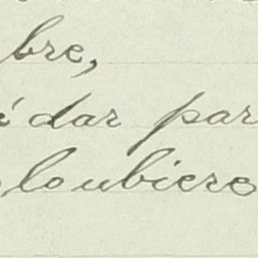 bre,
í dar par
loubiere